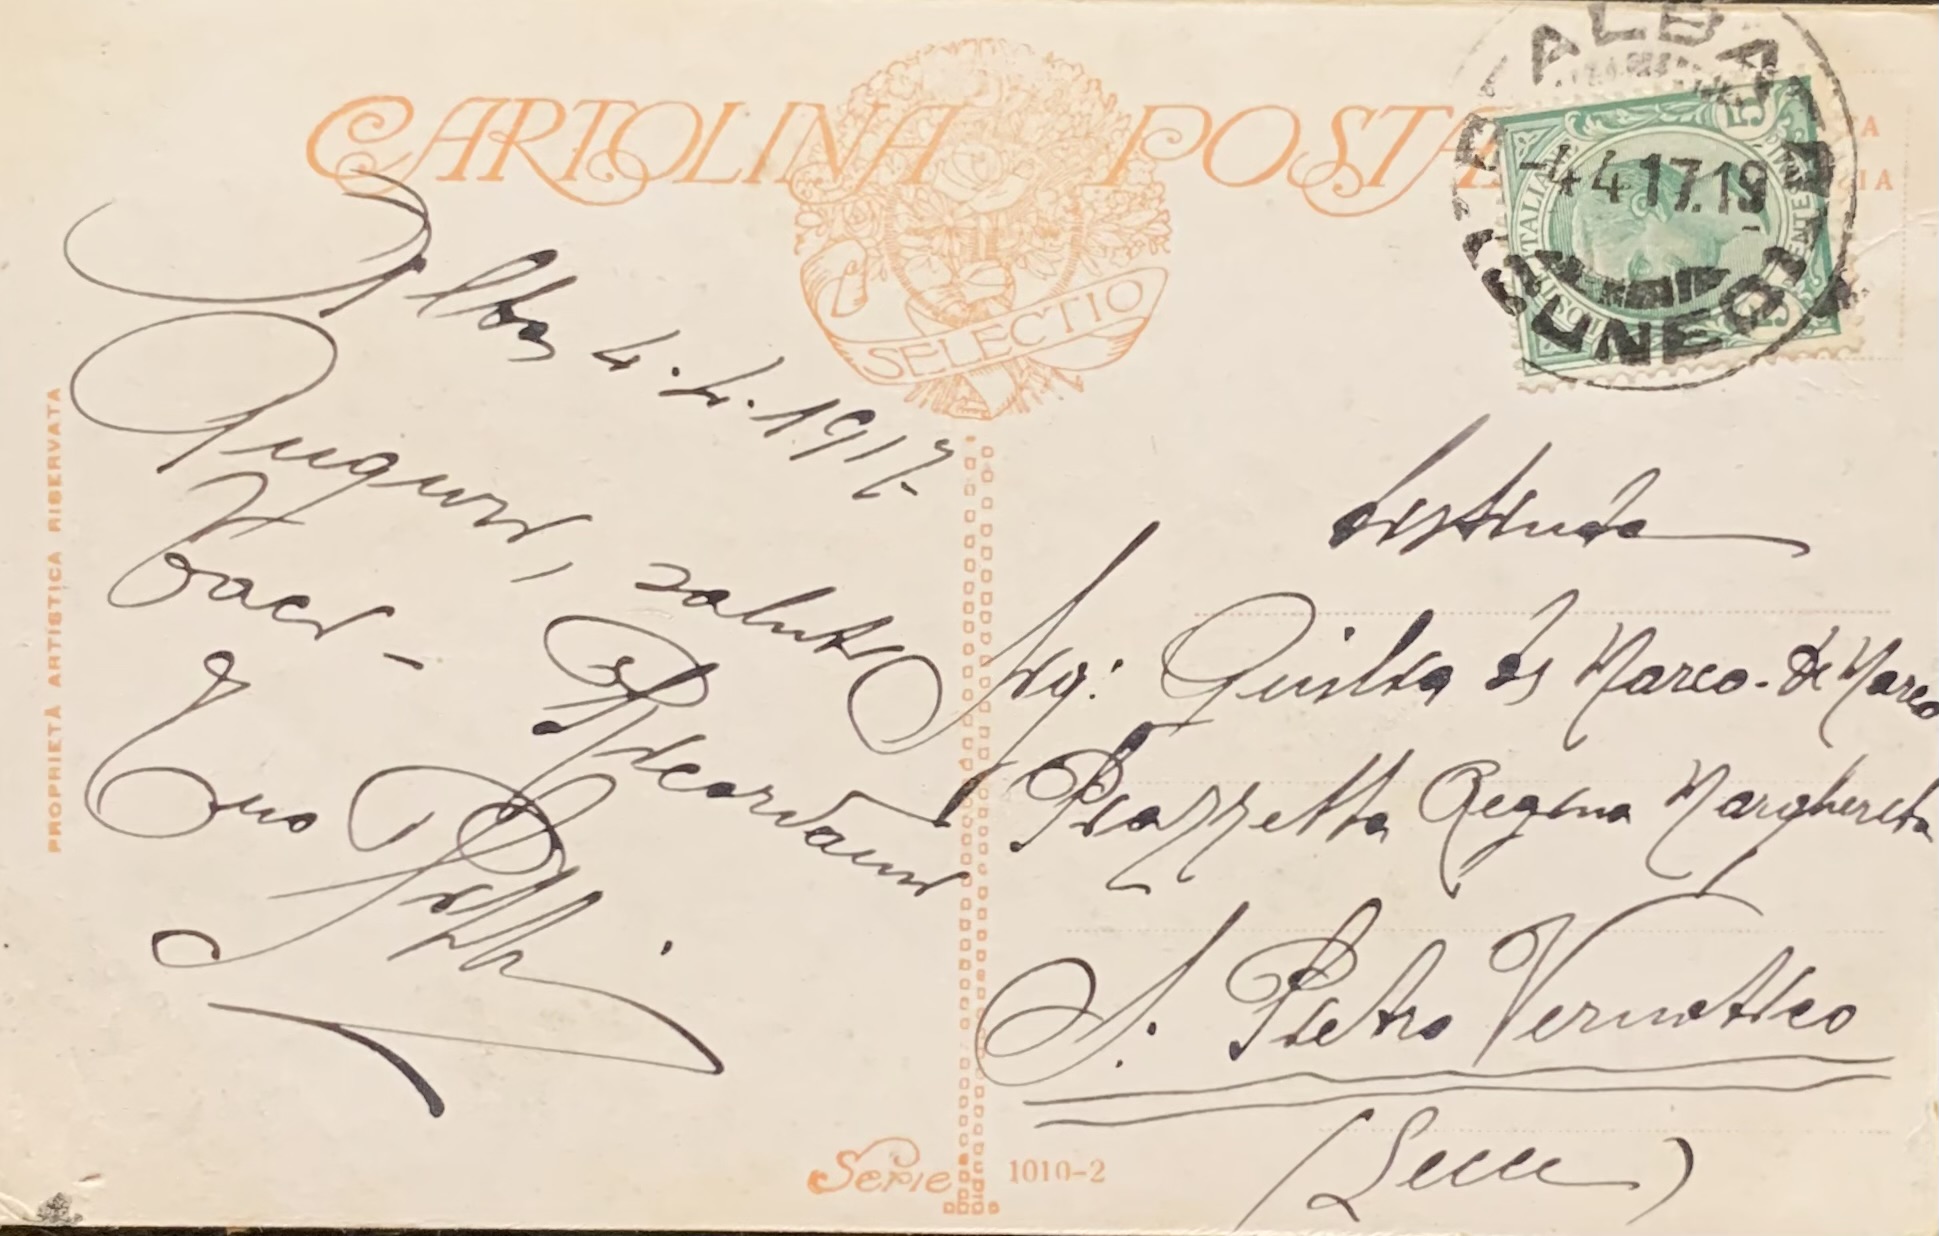 CARTOLINA POSTA
SELECTIO
ALBA
CUNEO
-4 4 17.19
5
PROPRIETÀ ARTISTICA RISERVATA
Alba 4.4.1917.
Auguri, saluti
baci - Ricordami
Distinta
Sig: Guilia de Marco - de Marco
Piazzetta Regina Margherita
S. Pietro Vernotico
(Lecce)
Serie 1010-2